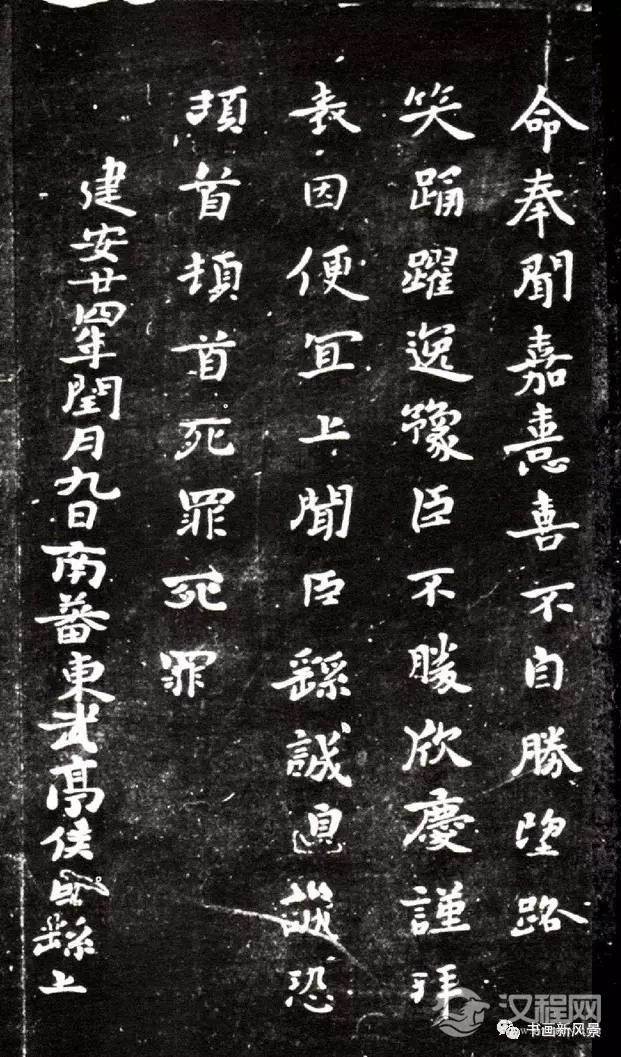 命奉聞嘉憙喜不自勝望路
笑踊躍逸豫臣不勝欣慶謹拜
表因便宜上聞臣繇誠惶誠恐
頓首頓首死罪死罪
建安廿四年閏月九日南蕃東武亭侯臣繇上
汉程网
书画新风景